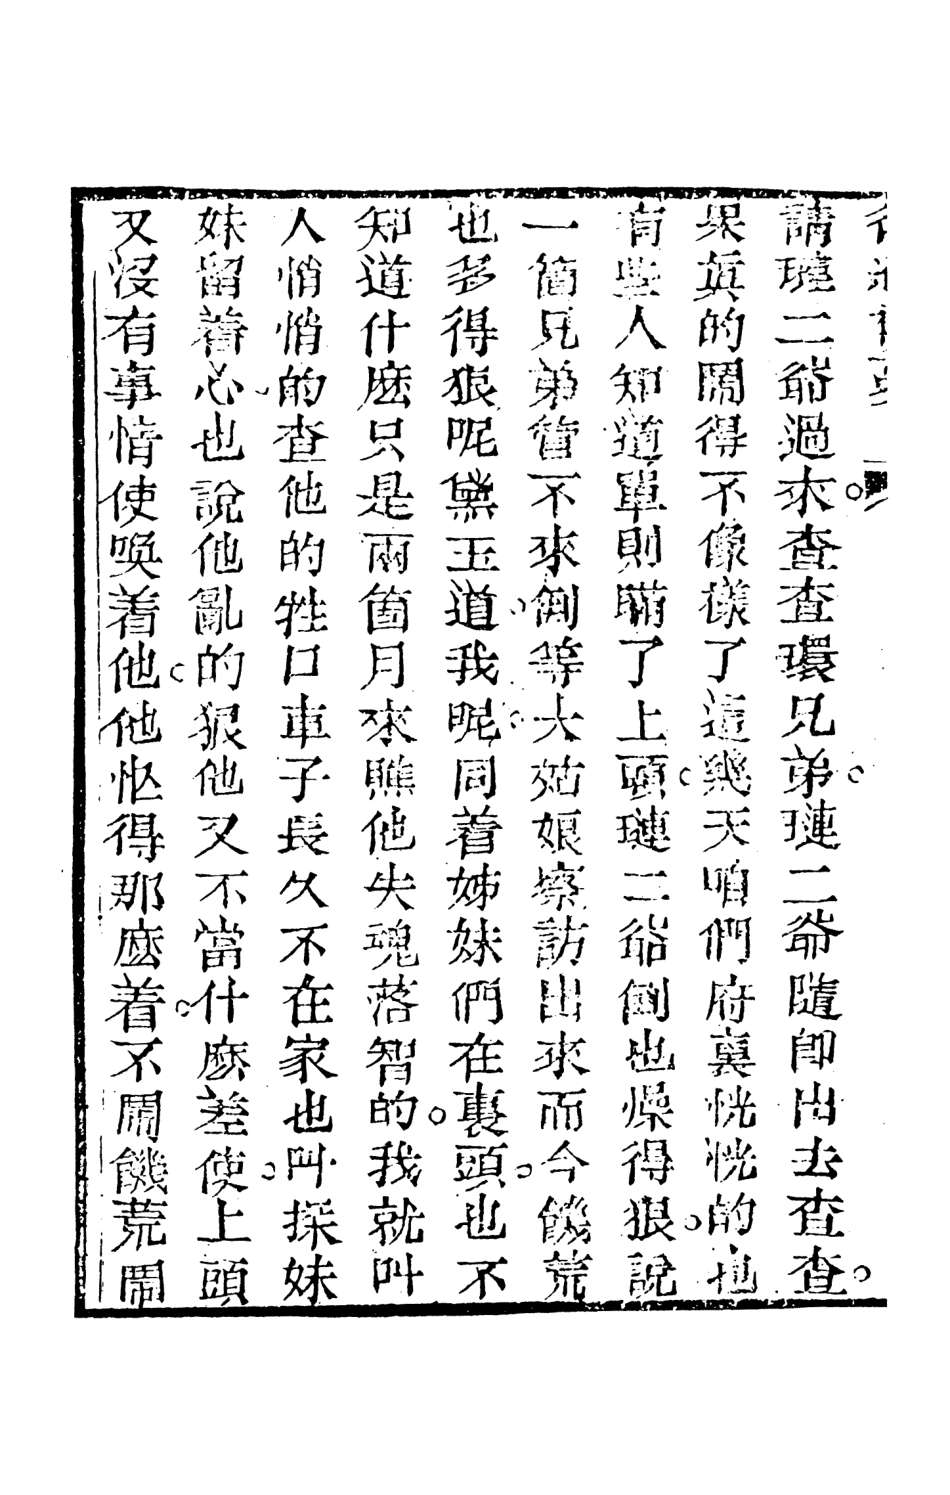 請璉二爺過來查查環兄弟璉二爺隨卽出去查查
果眞的鬧得不像樣了這幾天咱們府裏恍恍的也
有些人知道單則瞞了上頭璉二爺倒也燥得狠說
一箇兄弟管不來倒等大姑娘察訪出來而今饑荒
也多得狠呢黛玉道我呢同着姊妹們在裏頭也不
知道什麽只是兩箇月來瞧他失魂落智的我就叫
人悄悄的查他的牲口車子長久不在家也叫探妹
妹留着心也說他亂的狠他又不當什麽差使上頭
又沒有事情使喚着他他怄得那麽着不鬧饑荒鬧